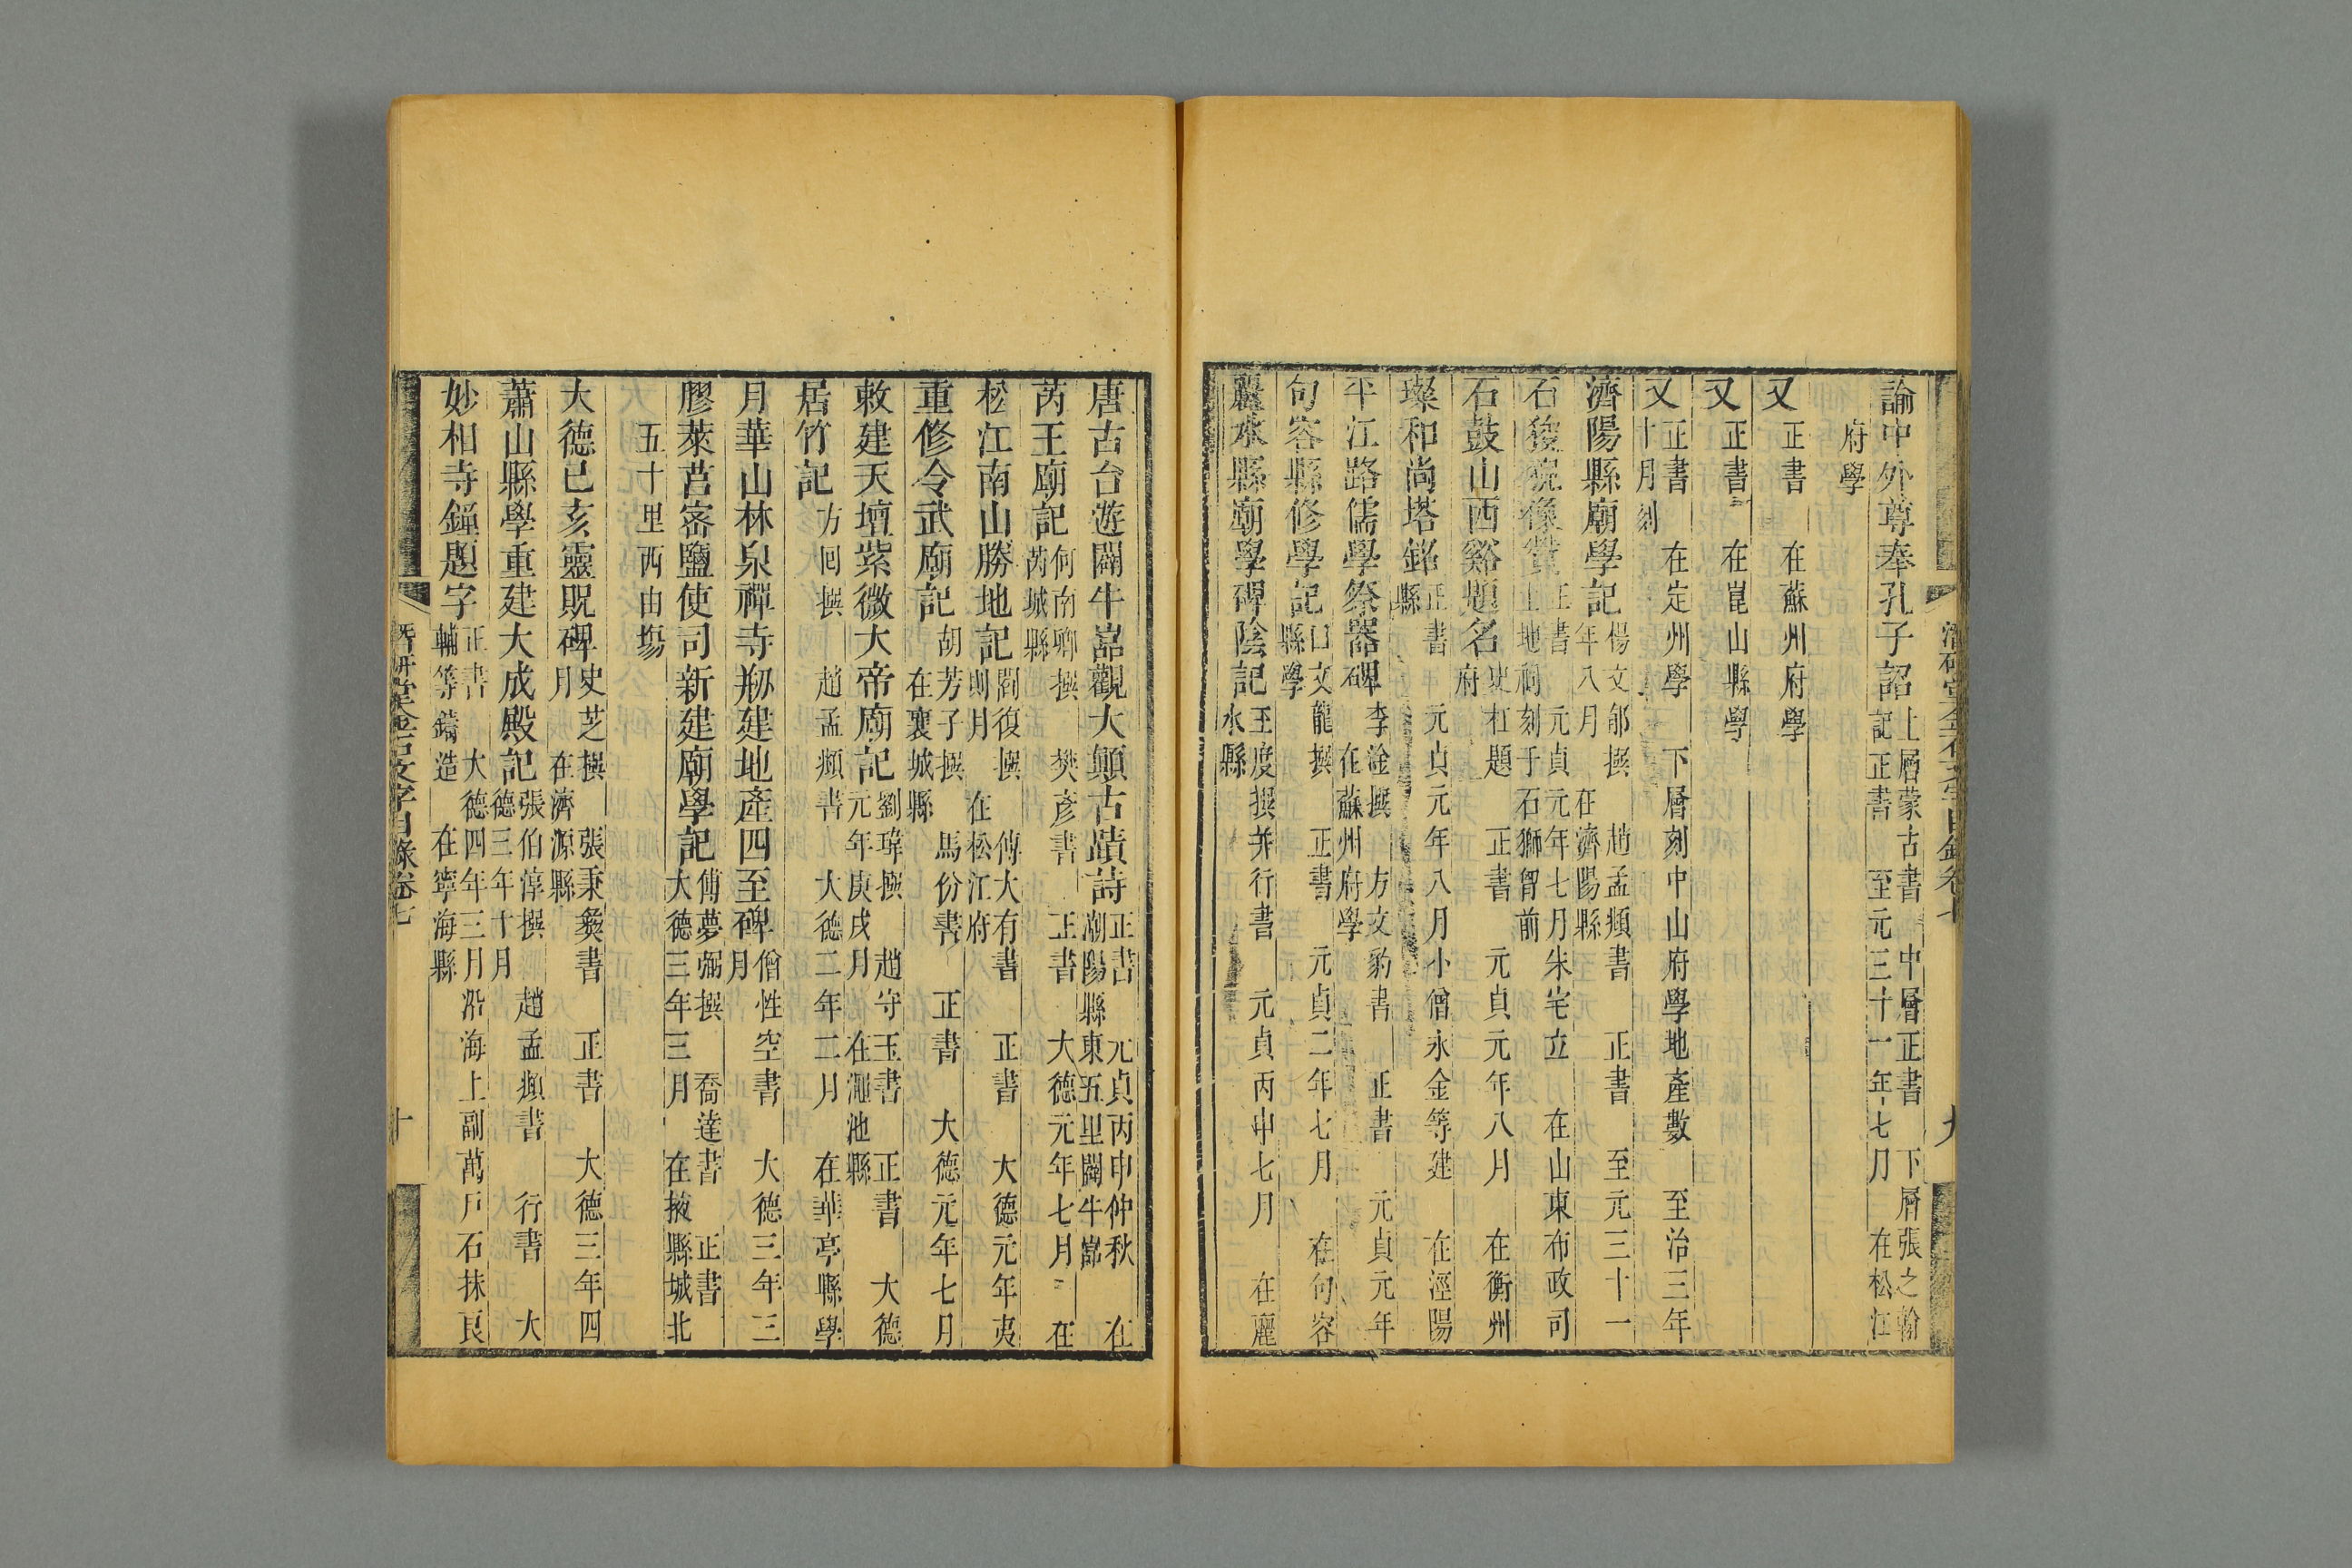 諭中外尊奉孔子詔 上層蒙古書 中層正書 下層張之翰記正書 至元三十一年七月 在松江
府學
又 正書 在蘇州府學
又 正書 在崑山縣學
又 正書 在定州學 下層刻中山府學地產數 至治三年十月刻
濟陽縣廟學記 楊文郁撰 趙孟頫書 正書 至元三十一年八月 在濟陽縣
石狻猊像贊 正書 元貞元年七月朱宅立 在山東布政司土地祠刻于石獅胷前
石鼓山西谿題名 史杠題 正書 元貞元年八月 在衡州府
璨和尚塔銘 正書 元貞元年八月小僧永金等建 在涇陽縣
平江路儒學祭器碑 李淦撰 方文豹書 正書 元貞元年 在蘇州府學
句容縣修學記 口文龍撰 正書 元貞二年七月 在句容縣學
麗水縣廟學碑陰記 王度撰并行書 元貞丙申七月 在麗水縣
唐古台遊闢牛嵓觀大顛古蹟詩 正書 元貞丙申仲秋 在潮陽縣東五里闢牛嵓
芮王廟記 何南卿撰 樊彥書 正書 大德元年七月 在芮城縣
松江南山勝地記 閻復撰 傅大有書 正書 大德元年夷則月 在松江府
重修令武廟記 胡芳子撰 馬份書 正書 大德元年七月 在襄城縣
敕建天壇紫微大帝廟記 劉瑋撰 趙守玉書 正書 大德元年庚戌月 在澠池縣
居竹記 方回撰 趙孟頫書 大德二年二月 在華亭縣學
月華山林泉禪寺刱建地產四至碑 僧性空書 大德三年三月
膠萊莒密鹽使司新建廟學記 傅夢弼撰 喬達書 正書 大德三年三月 在掖縣城北
五十里西由塲
大德己亥靈貺碑 史芝撰 張秉彝書 正書 大德三年四月 在濟源縣
蕭山縣學重建大成殿記 張伯淳撰 趙孟頫書 行書 大德三年十月
妙相寺鐘題字 正書 大德四年三月沿海上副萬戶石抹良輔等鑄造 在寧海縣
潛研堂金石文字目錄卷七 九
潛研堂金石文字目錄卷七 十